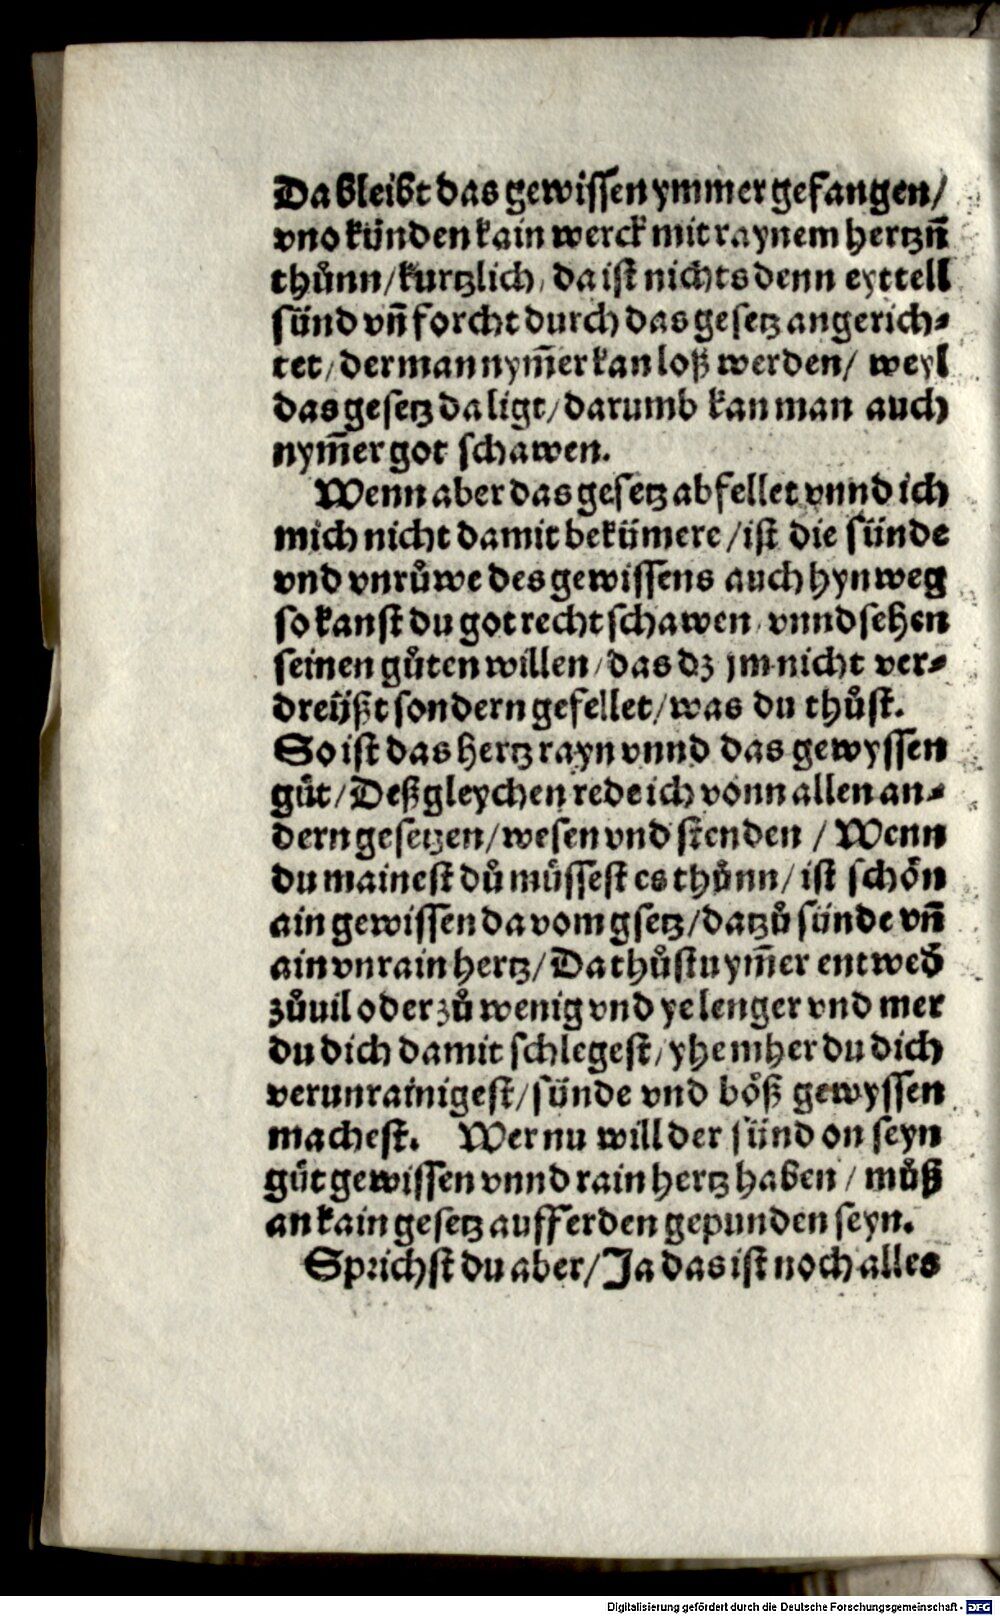 Da bleibt das gewissen ymmer gefangen/
vnd künden kain werck mit raynem hertzñ
thůnn/kurtzlich, da ist nichts denn eyttell
sünd vñ forcht durch das gesetz angerich⸗
tet/der man nym̃er kan loß werden/ weyl
das gesetz da ligt/darumb kan man auch
nym̃er got schawen.
Wenn aber das gesetz abfellet vnnd ich
mich nicht damit bekümere/ist die sünde
vnd vnrůwe des gewissens auch hyn weg
so kanst du got recht schawen, vnnd sehen
seinen gůten willen/das dz jm nicht ver⸗
dreüßt sondern gefellet/was du thůst.
So ist das hertz rayn vnnd das gewyssen
gůt/Deßgleychen rede ich vonn allen an⸗
dern gesetzen/wesen vnd stenden / Wenn
du mainest dů müssest es thůnn/ist schön
ain gewissen da vom gsetz/datzů sünde vñ
ain vnrain hertz/Da thůst nym̃er entwed̃
zůuil oder zů wenig vnd ye lenger vnd mer
du dich damit schlegest/yhe mher du dich
verunrainigest/sünde vnd böß gewyssen
machest. Wer nu will der sünd on seyn
gůt gewissen vnnd rain hertz haben/můß
an kain gesetz auff erden gepunden seyn.
Sprichst du aber/Ja das ist noch alles
Digitalisierung gefördert durch die Deutsche Forschungsgemeinschaft - DFG